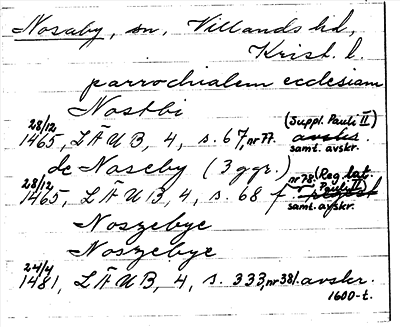 Nosaby, sn, Villands hd,
Krist. l.
parrochialem ecclesiam
Nostbi
28/12 1465, LÄUB, 4, s. 67, nr 77. (Suppl. Pauli II) samt. avskr.
de Noseby (3 ggr.)
28/12 1465, LÄUB, 4, s. 68 f nr 78. (Reg. lat. Pauli II) samt. avskr.
Noszebye
Noszebye
24/4 1481, LÄUB, 4, s. 333, nr 381. avskr. 1600-t.